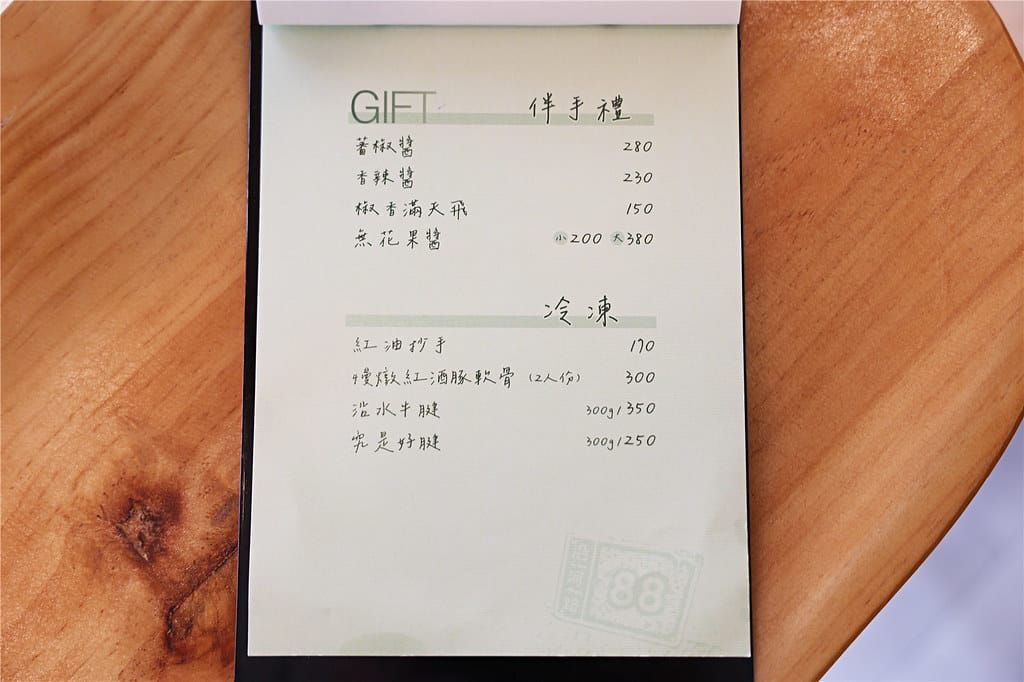 GIFT 伴手禮
蕃椒醬 280
香辣醬 230
椒香滿天飛 150
無花果醬 小200 大380
冷凍
紅油抄手 170
慢燉紅酒豚軟骨 (2人份) 300
沿水牛腱 300g/350
究是好腱 300g/250
88